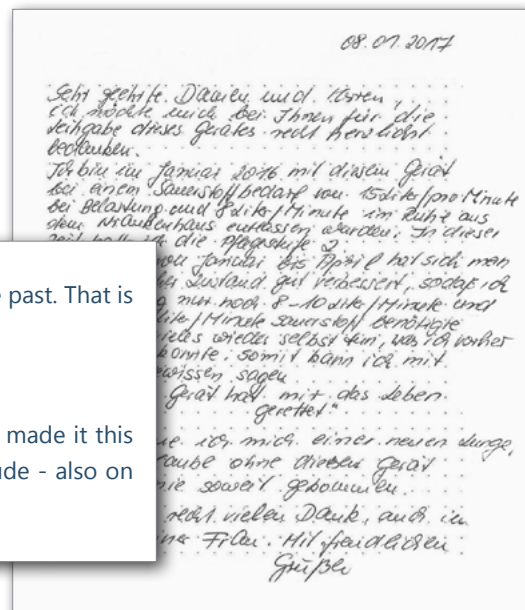 08.01.2017
Sehr geehrte Damen und Herren,
ich möchte mich bei Ihnen für die
Leihgabe dieses Gerätes recht herzlichst
bedanken.
Ich bin im Januar 2016 mit diesem Gerät
bei einem Sauerstoffbedarf von 15 Liter/pro Minute
bei Belastung und 8 Liter/Minute im Ruhe aus
dem Krankenhaus entlassen worden. In dieser
die Pflegestufe 2
von Januar bis April hat sich mein
Zustand gut verbessert, sodaß ich
nur noch 8-10 Liter/Minute und
Liter/Minute Sauerstoff benötigte
vieles wieder selbst tun, was ich vorher
konnte, somit kann ich mit
Gewissen sagen
Gerät hat mir das Leben
gerettet"
ich mich einer neuen Lunge,
glaube ohne dieses Gerät
nie soweit gekommen.
recht vielen Dank, auch im
Frau. Mit freundlichen
Grüßen
past. That is
made it this
ude - also on